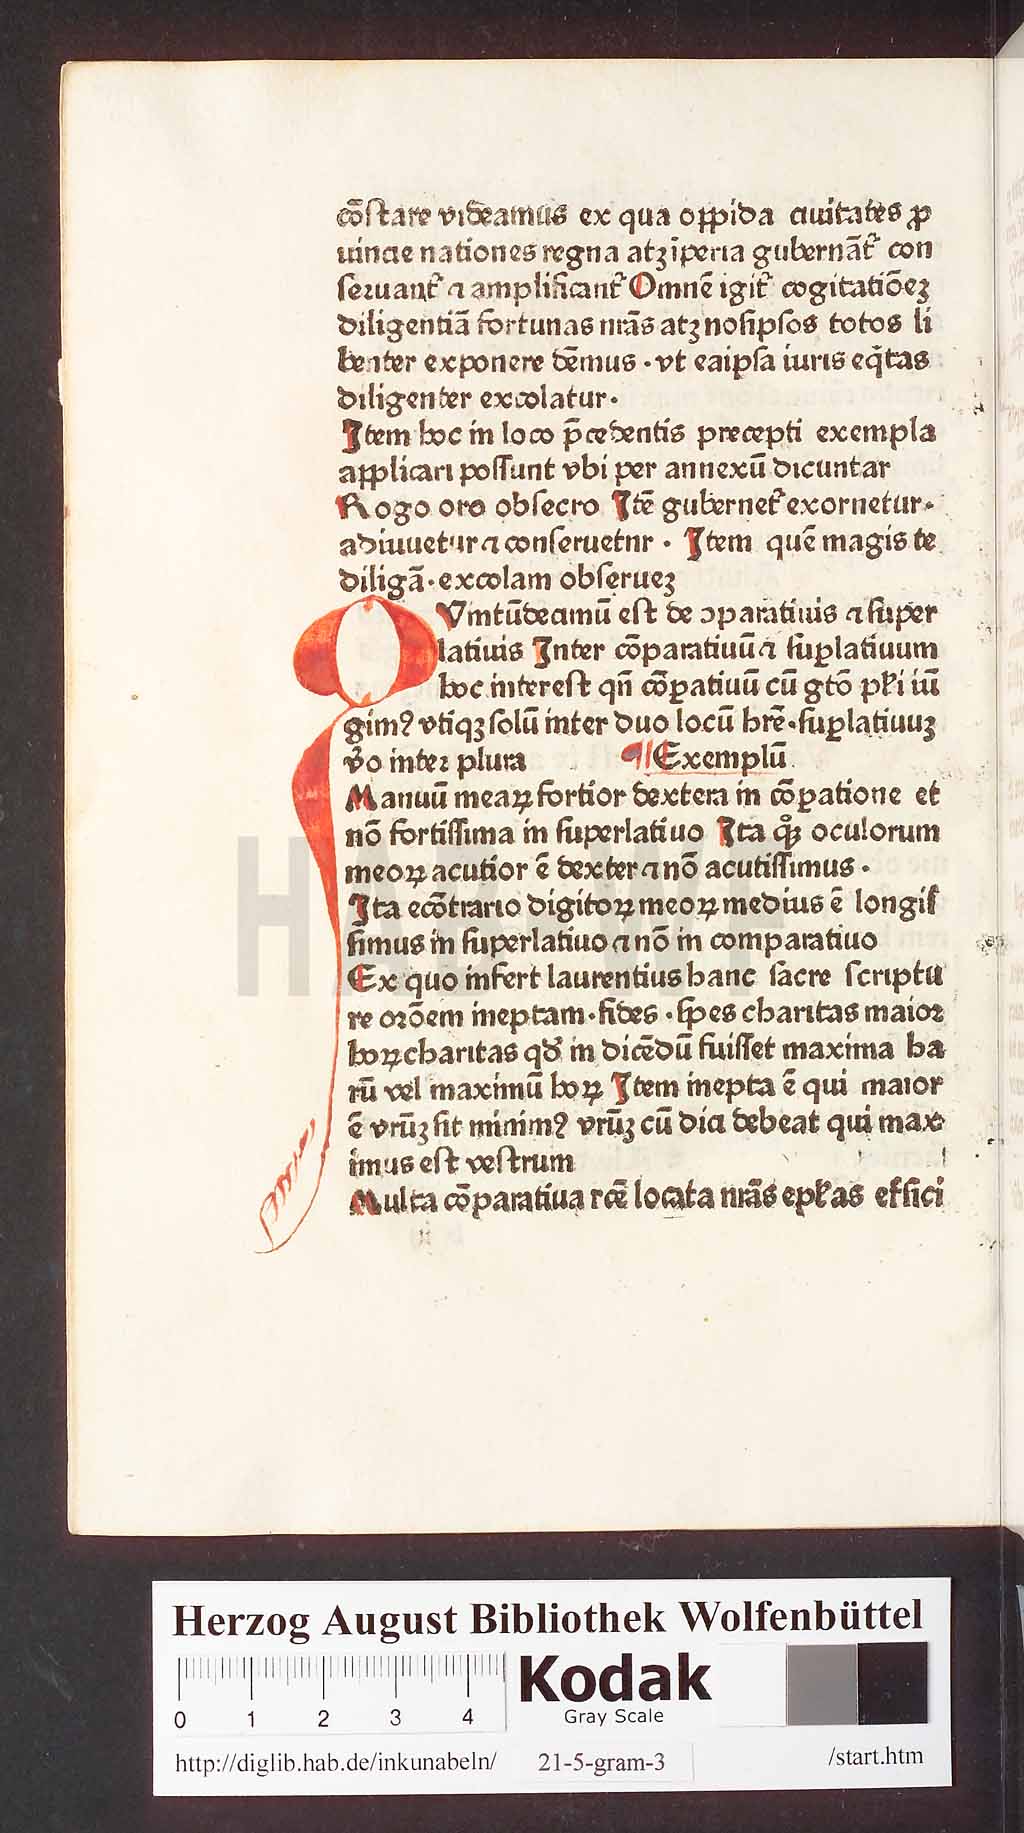 cõstare videamus ex qua oppida ciuitates ꝓ
uincie nationes regna atqꝫ ĩperia gubernãt᷑ con
seruant᷑ ⁊ amplificant᷑ Omnẽ igit᷑ cogitatiõeꝫ
diligentiã fortunas nr̃as atqꝫ nosipsos totos li
benter exponere dẽmus · vt eaipsa iuris eq̃tas
diligenter excolatur ·
Item hoc in loco p̃cedentis precepti exempla
applicari possunt vbi per annexũ dicuntar
Rogo oro obsecro Itẽ gubernet᷑ exornetur ·
adiuuetur ⁊ conseruetnr · Item quẽ magis te
diligã · excolam obserueꝫ
Vmtũdecimũ est de ↄparatiuis ⁊ super
latiuis Inter cõparatiuũ ⁊ suꝑlatiuum
hoc interest qñ cõꝑatiuũ cũ gtõ pł̃i iũ
gimꝰ vtiqꝫ solũ inter duo locũ hr̃e · suꝑlatiuuꝫ
ṽo inter plura ¶ Exemplũ
Manuũ meaꝝ fortior dextera in cõꝑatione et
nõ fortissima in superlatiuo Ita qͦqꝫ oculorum
meoꝝ acutior ẽ dexter ⁊ nõ acutissimus ·
Ita ecõtrario digitoꝝ meoꝝ medius ẽ longis
simus in superlatiuo ⁊ nõ in comparatiuo
Ex quo infert laurentius hanc sacre scriptu
re orõem ineptam · fides · spes charitas maior
hoꝝ charitas qd̾ in dicẽdũ fuisset maxima ha
rũ vel maximũ hoꝝ Item inepta ẽ qui maior
ẽ vr̃ũꝫ sit minimꝰ vr̃ũꝫ cũ dici debeat qui max
imus est vestrum
Multa cõparatiua rc̃e locata nr̃as epł̃as effici
HAB WF
Herzog August Bibliothek Wolfenbüttel
0 1 2 3 4
Kodak
Gray Scale
http://diglib.hab.de/inkunabeln/ 21-5-gram-3 /start.htm